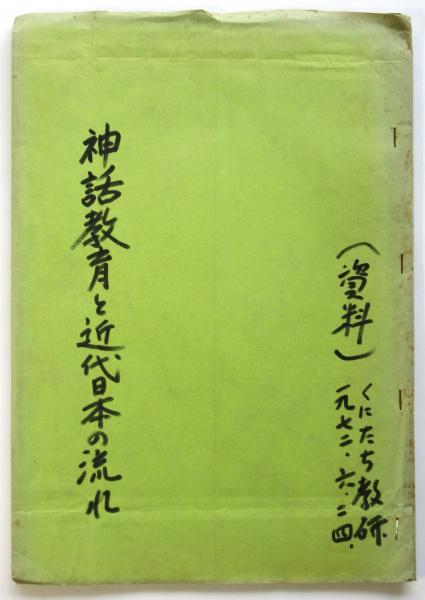 (資料)
くにたち教研
一九七二・六・二四・
神話教育と近代日本の流れ